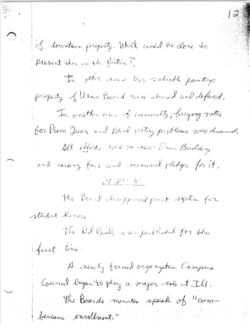 12
of downtown property. What could be done to
prevent this in the future?
In other news two valuable paintings
property of Union Board were and defaced.
In another area of community, buying votes
for Prom Queen and block voting problems was
All efforts were to new Union Building
and raising fees and memorial pledges for it.
The Board disapproved point system for
student
The Red Book was published for the
first time.
A newly formed organization Campus
Council began to play a major role at I.U.
The Boards minutes speak of "cum-
bersome enrollment."